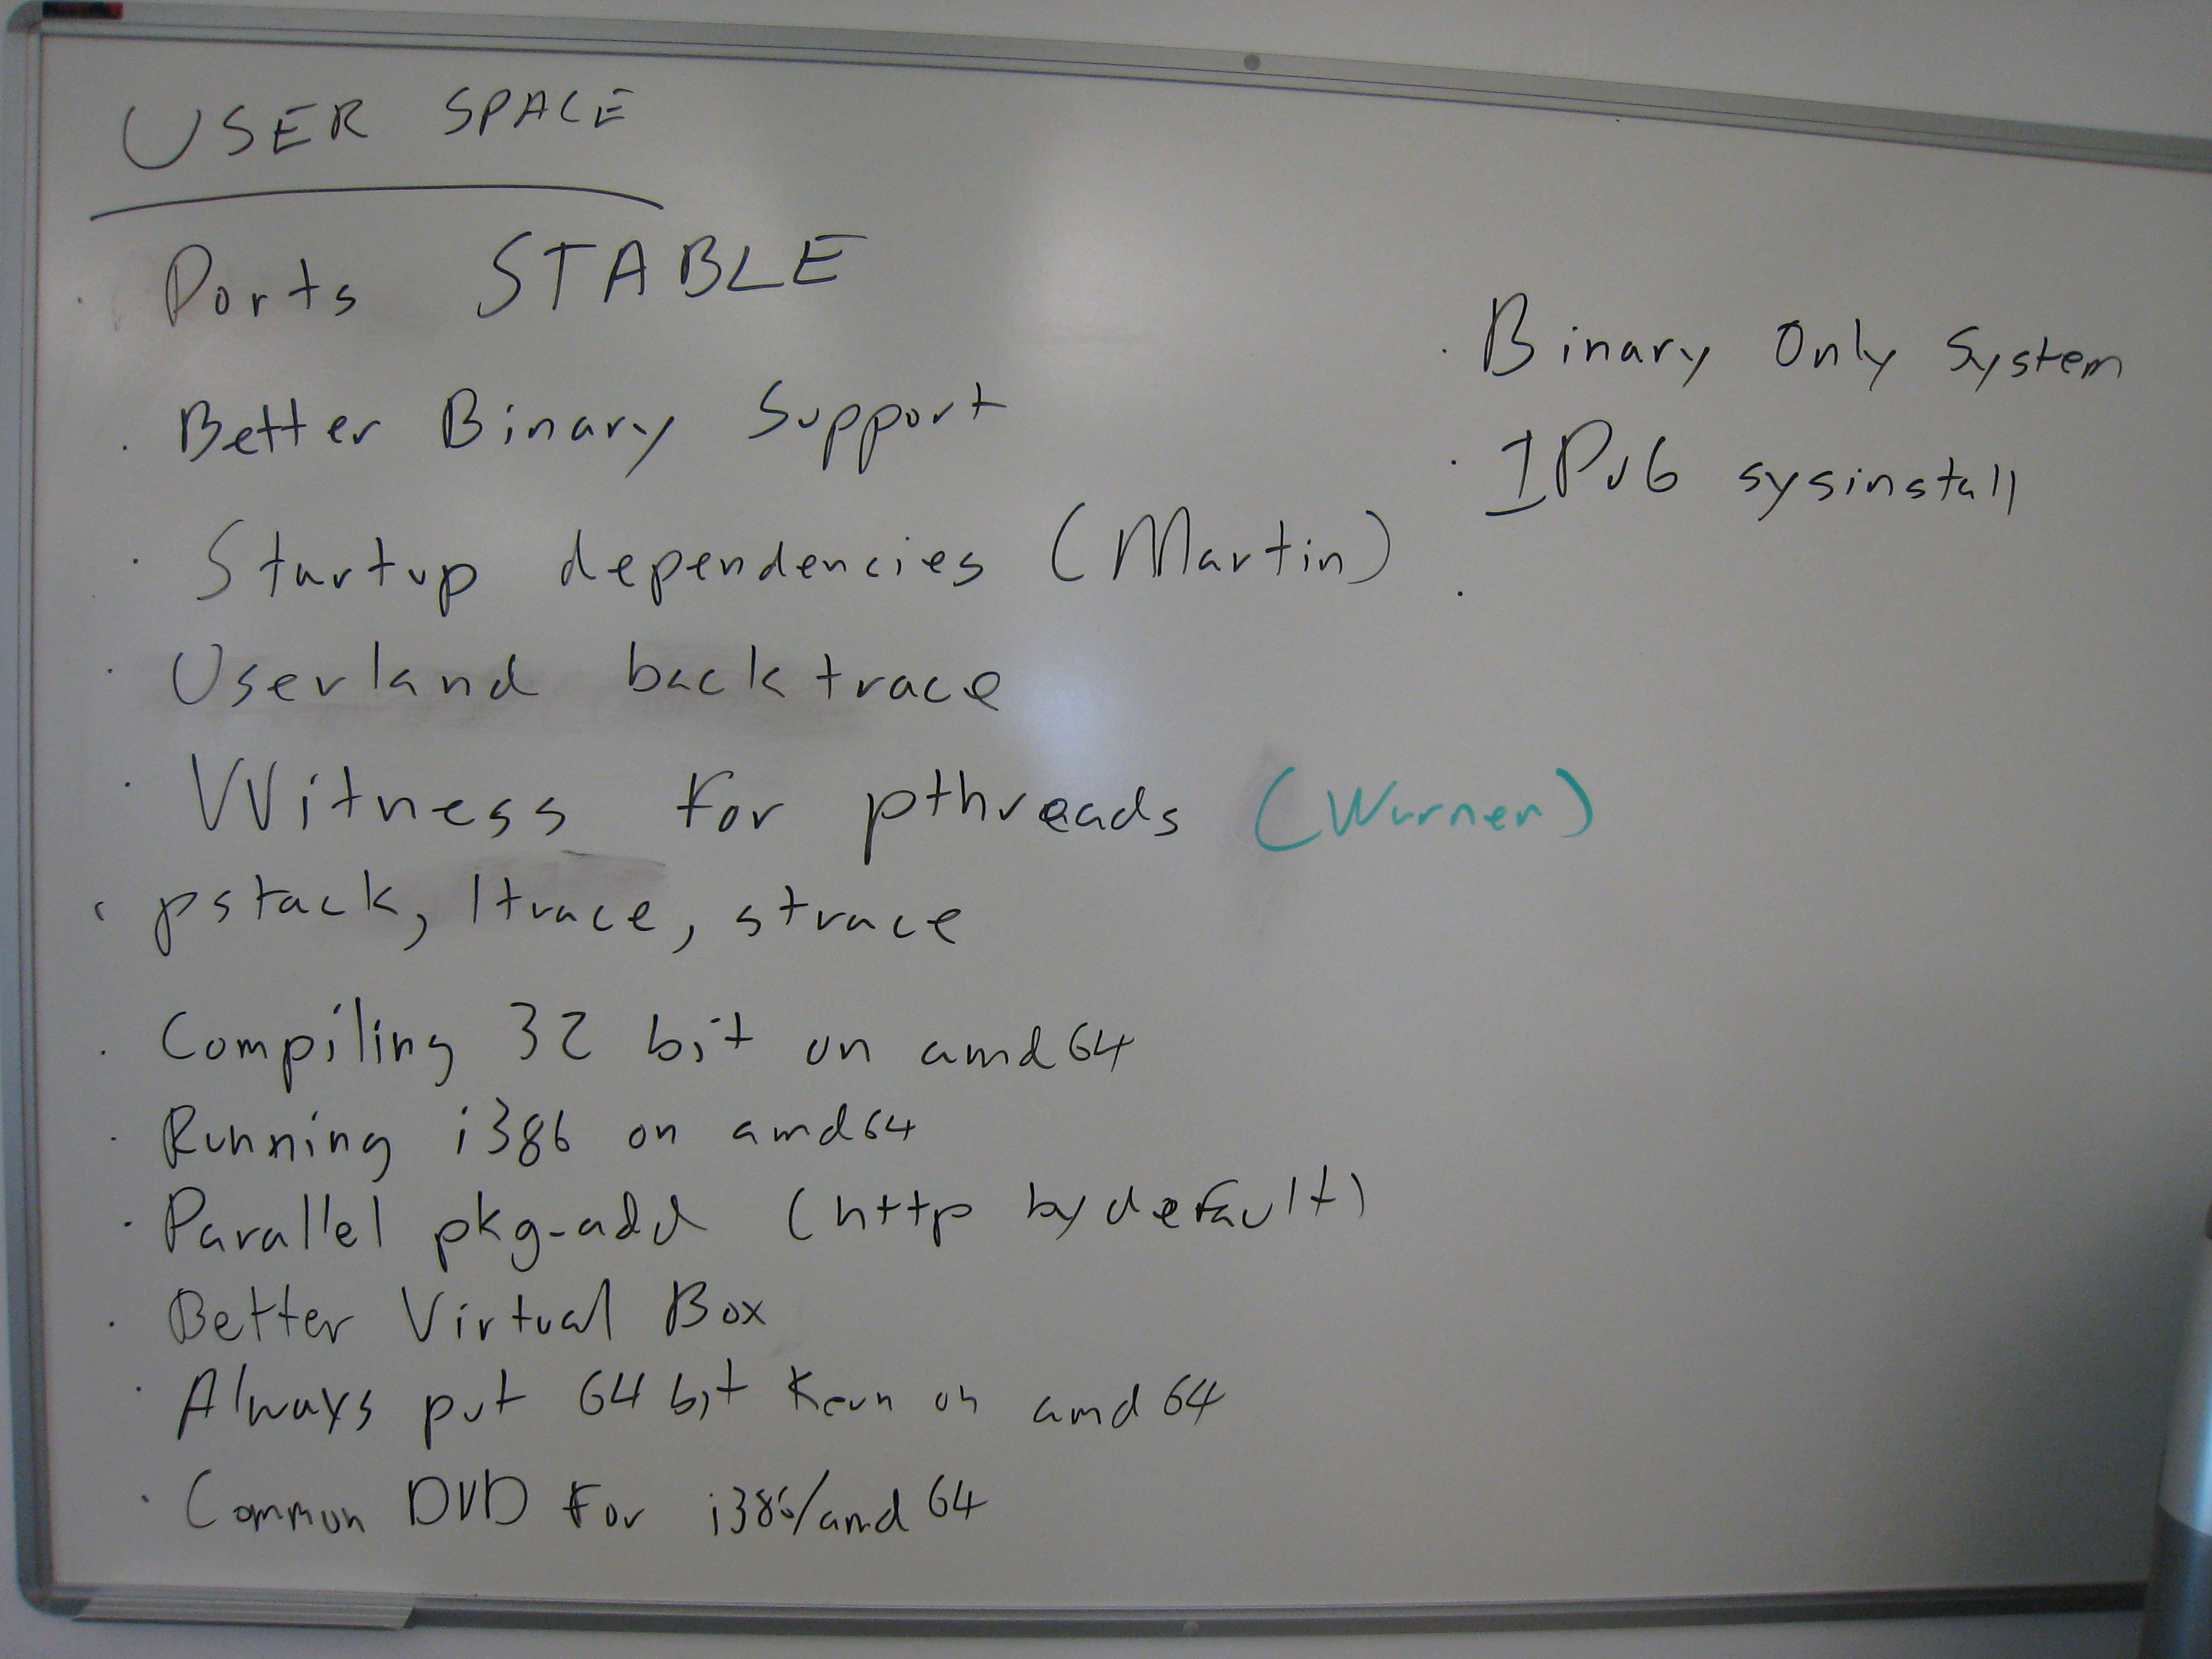 USER SPACE
· Ports STABLE
· Better Binary Support
· Startup dependencies (Martin)
· Userland backtrace
· Witness for pthreads (Warner)
· pstack, ltrace, strace
· Compiling 32 bit on amd64
· Running i386 on amd64
· Parallel pkg-add (http by default)
· Better Virtual Box
· Always put 64 bit Kern on amd64
· Common DVD for i386/amd64
· Binary Only System
· IPv6 sysinstall
·